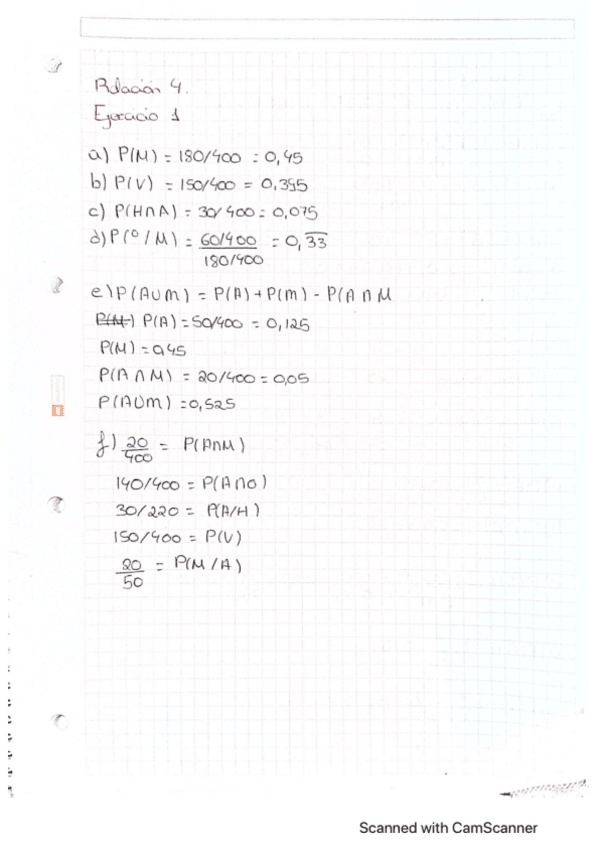 Relación 4.
Ejercicio 1
a) P(M) = 180/400 = 0,45
b) P(V) = 150/400 = 0,395
c) P(H∩A) = 30/400 = 0,075
d) P(O/M) = 60/400 / 180/400 = 0,33
e) P(A∪M) = P(A) + P(M) - P(A∩M
P(M) P(A) = 50/400 = 0,125
P(M) = 0,45
P(A∩M) = 20/400 = 0,05
P(A∪M) = 0,525
f) 20/400 = P(A∩M)
140/400 = P(A∩O)
30/220 = P(A/H)
150/400 = P(V)
20/50 = P(M/A)
Scanned with CamScanner